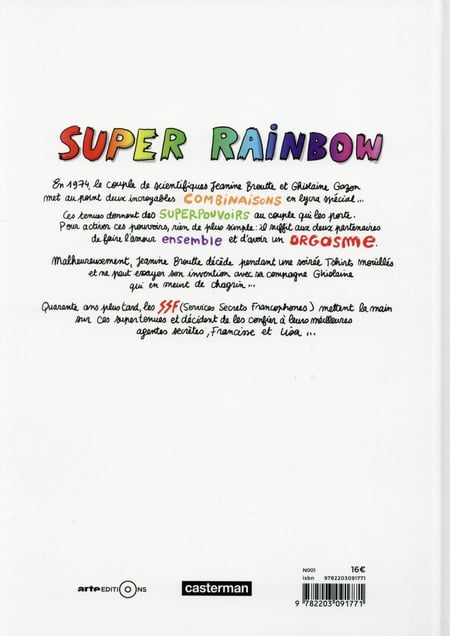 SUPER RAINBOW
En 1974, le couple de scientifiques Jeanine Broutte et Ghislaine Gazon
met au point deux incroyables COMBINAISONS en lycra spécial...
Ces tenues donnent des SUPERPOUVOIRS au couple qui les porte.
Pour activer ces pouvoirs, rien de plus simple : il suffit aux deux partenaires
de faire l'amour ensemble et d'avoir un ORGASME.
Malheureusement, Jeanine Broutte décède pendant une soirée Tshirts mouillés
et ne peut essayer son invention avec sa compagne Ghislaine
qui en meurt de chagrin...
Quarante ans plus tard, les SSF (Services Secrets Francophones) mettent la main
sur ces supertenues et décident de les confier à leurs meilleures
agentes secrètes, Francisse et Lisa...
arte EDITIONS
casterman
N001
16€
isbn 9782203091771
9 782203 091771